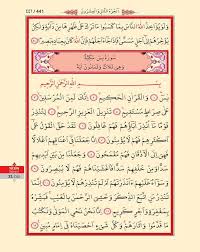 441
وَلَوْ يُؤَاخِذُ اللّٰهُ النَّاسَ بِمَا كَسَبُوا مَا تَرَكَ عَلٰى ظَهْرِهَا مِنْ دَٓابَّةٍ وَلٰكِنْ
يُؤَخِّرُهُمْ اِلٰٓى اَجَلٍ مُسَمًّى فَاِذَا جَٓاءَ اَجَلُهُمْ فَاِنَّ اللّٰهَ كَانَ بِعِبَادِهٖ بَصِيرًا
سُورَةُ يٰسٓ مَكِّيَّةٌ
وَهِيَ ثَلَاثٌ وَثَمَانُونَ اٰيَةً
بِسْمِ اللّٰهِ الرَّحْمٰنِ الرَّحِيمِ
يٰسٓ وَالْقُرْاٰنِ الْحَكِيمِ اِنَّكَ لَمِنَ الْمُرْسَلِينَ عَلٰى
صِرَاطٍ مُسْتَقِيمٍ تَنْزِيلَ الْعَزِيزِ الرَّحِيمِ لِتُنْذِرَ
قَوْمًا مَٓا اُنْذِرَ اٰبَٓاؤُهُمْ فَهُمْ غَافِلُونَ لَقَدْ حَقَّ الْقَوْلُ
عَلٰٓى اَكْثَرِهِمْ فَهُمْ لَا يُؤْمِنُونَ اِنَّا جَعَلْنَا فِٓي اَعْنَاقِهِمْ اَغْلَالًا
فَهِيَ اِلَى الْاَذْقَانِ فَهُمْ مُقْمَحُونَ وَجَعَلْنَا مِنْ بَيْنِ اَيْدِيهِمْ
سَدًّا وَمِنْ خَلْفِهِمْ سَدًّا فَاَغْشَيْنَاهُمْ فَهُمْ لَا يُبْصِرُونَ
وَسَوَٓاءٌ عَلَيْهِمْ ءَاَنْذَرْتَهُمْ اَمْ لَمْ تُنْذِرْهُمْ لَا يُؤْمِنُونَ اِنَّمَا تُنْذِرُ
مَنِ اتَّبَعَ الذِّكْرَ وَخَشِيَ الرَّحْمٰنَ بِالْغَيْبِ فَبَشِّرْهُ
بِمَغْفِرَةٍ وَاَجْرٍ كَرِيمٍ اِنَّا نَحْنُ نُحْيِ الْمَوْتٰى وَنَكْتُبُ
مَا قَدَّمُوا وَاٰثَارَهُمْ وَكُلَّ شَيْءٍ اَحْصَيْنَاهُ فِٓي اِمَامٍ مُبِينٍ